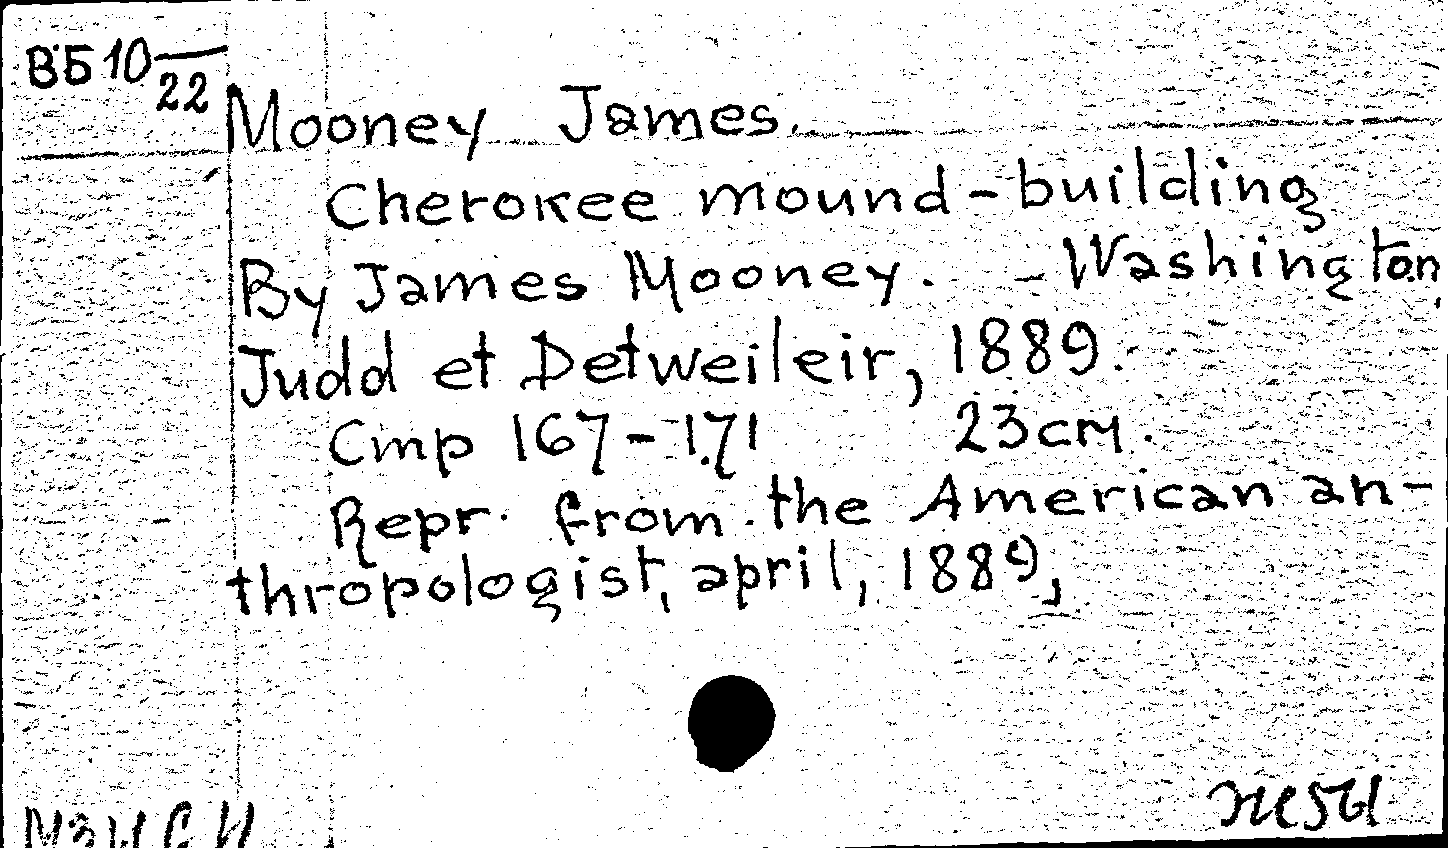 ВБ 10/22
Mooney James.
Cherokee mound-building
By James Mooney. - Washington,
Judd et Detweileir, 1889.
Cmp 167-171 23cm.
Repr. from the American an-
thropologist, april, 1889,